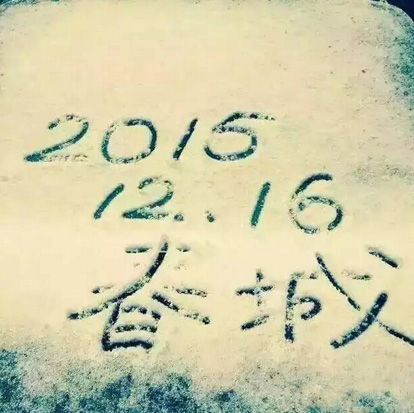 2015
12..16
春城